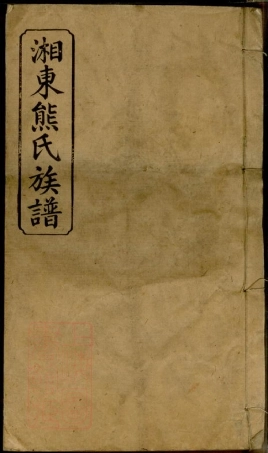 湘東熊氏族譜